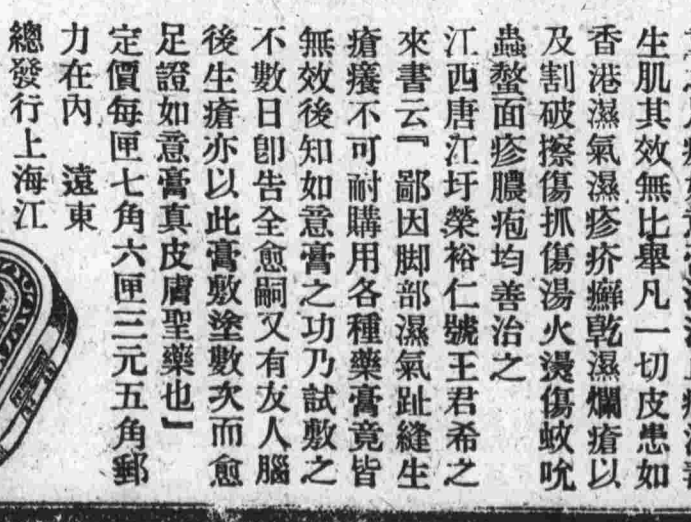 生肌其效無比舉凡一切皮患如
香港濕氣濕疹疥癬乾濕爛瘡以
及割破擦傷抓傷湯火燙傷蚊吮
蟲螫面疹膿疱均善治之
江西唐江圩榮裕仁號王君希之
來書云『鄙因脚部濕氣趾縫生
瘡癢不可耐購用各種藥膏竟皆
無效後知如意膏之功乃試敷之
不數日卽告全愈嗣又有友人腦
後生瘡亦以此膏敷塗數次而愈
足證如意膏真皮膚聖藥也』
定價每匣七角六匣三元五角郵
力在內　遠東
總發行上海江